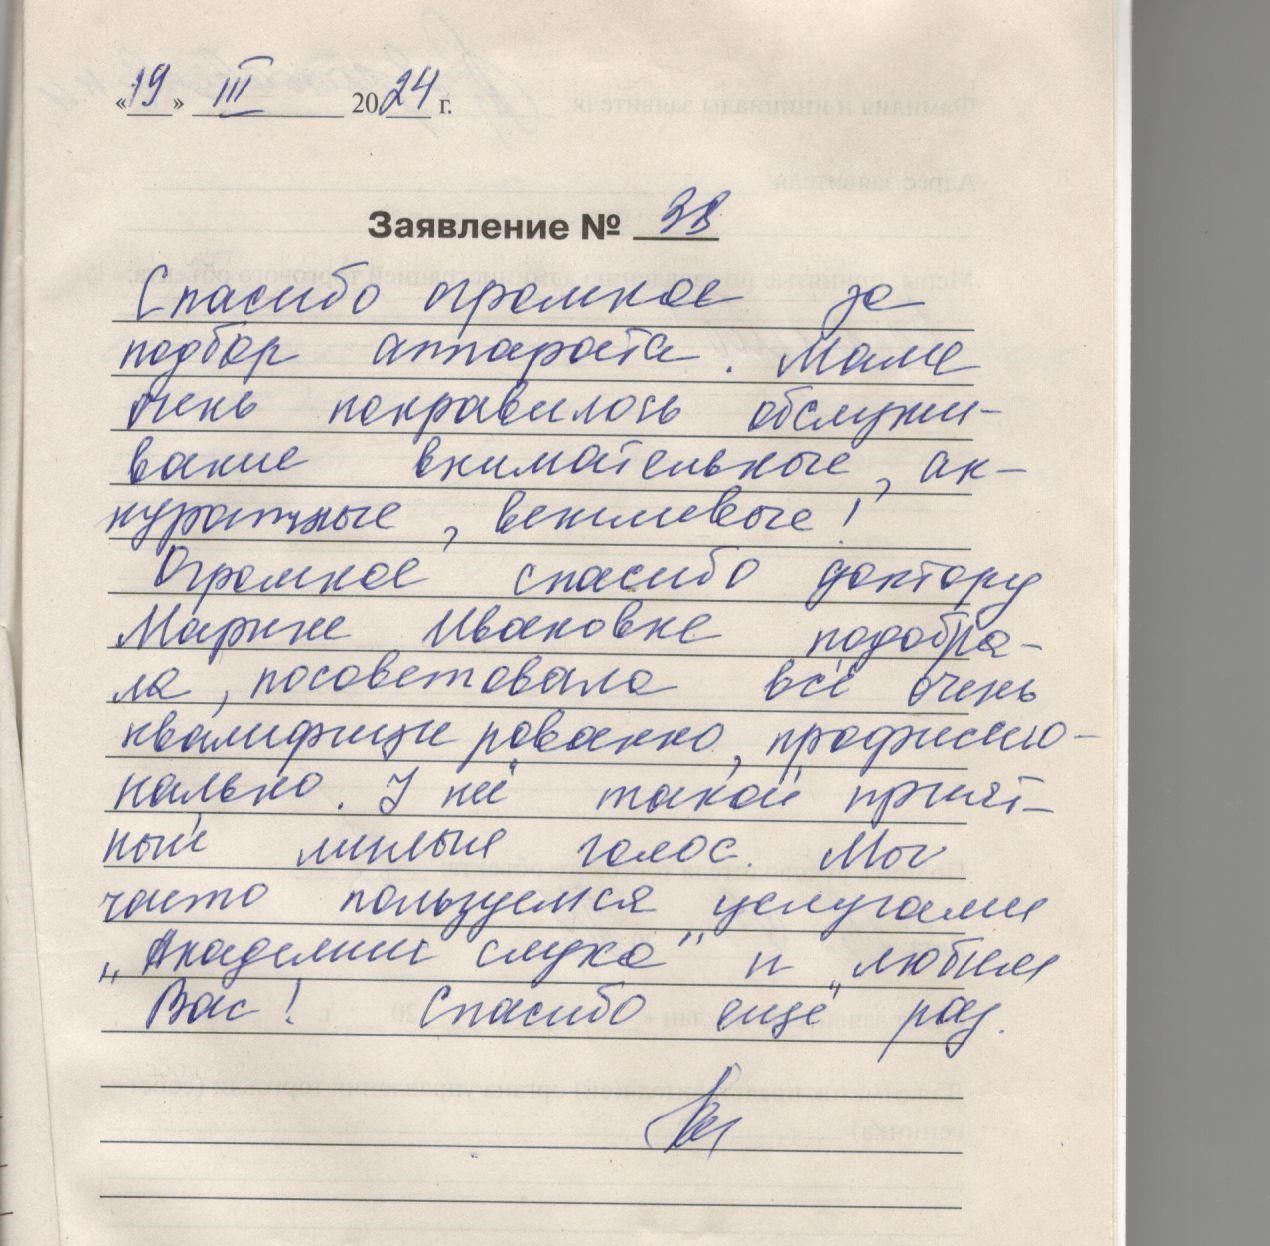 «19» III 2024 г.
Заявление № 38
Спасибо огромное за
подбор аппарата. Маме
очень понравилось обслужи-
вание внимательные, ак-
куратные, вежливые!
Огромное спасибо доктору
Марине Ивановне подобра-
ла, посоветовала всё очень
квалифици рованно, профессио-
нально. У неё такой прият-
ный милый голос. Мы
часто пользуемся услугами
„Академии слуха" и „любим
Вас! Спасибо ещё раз.